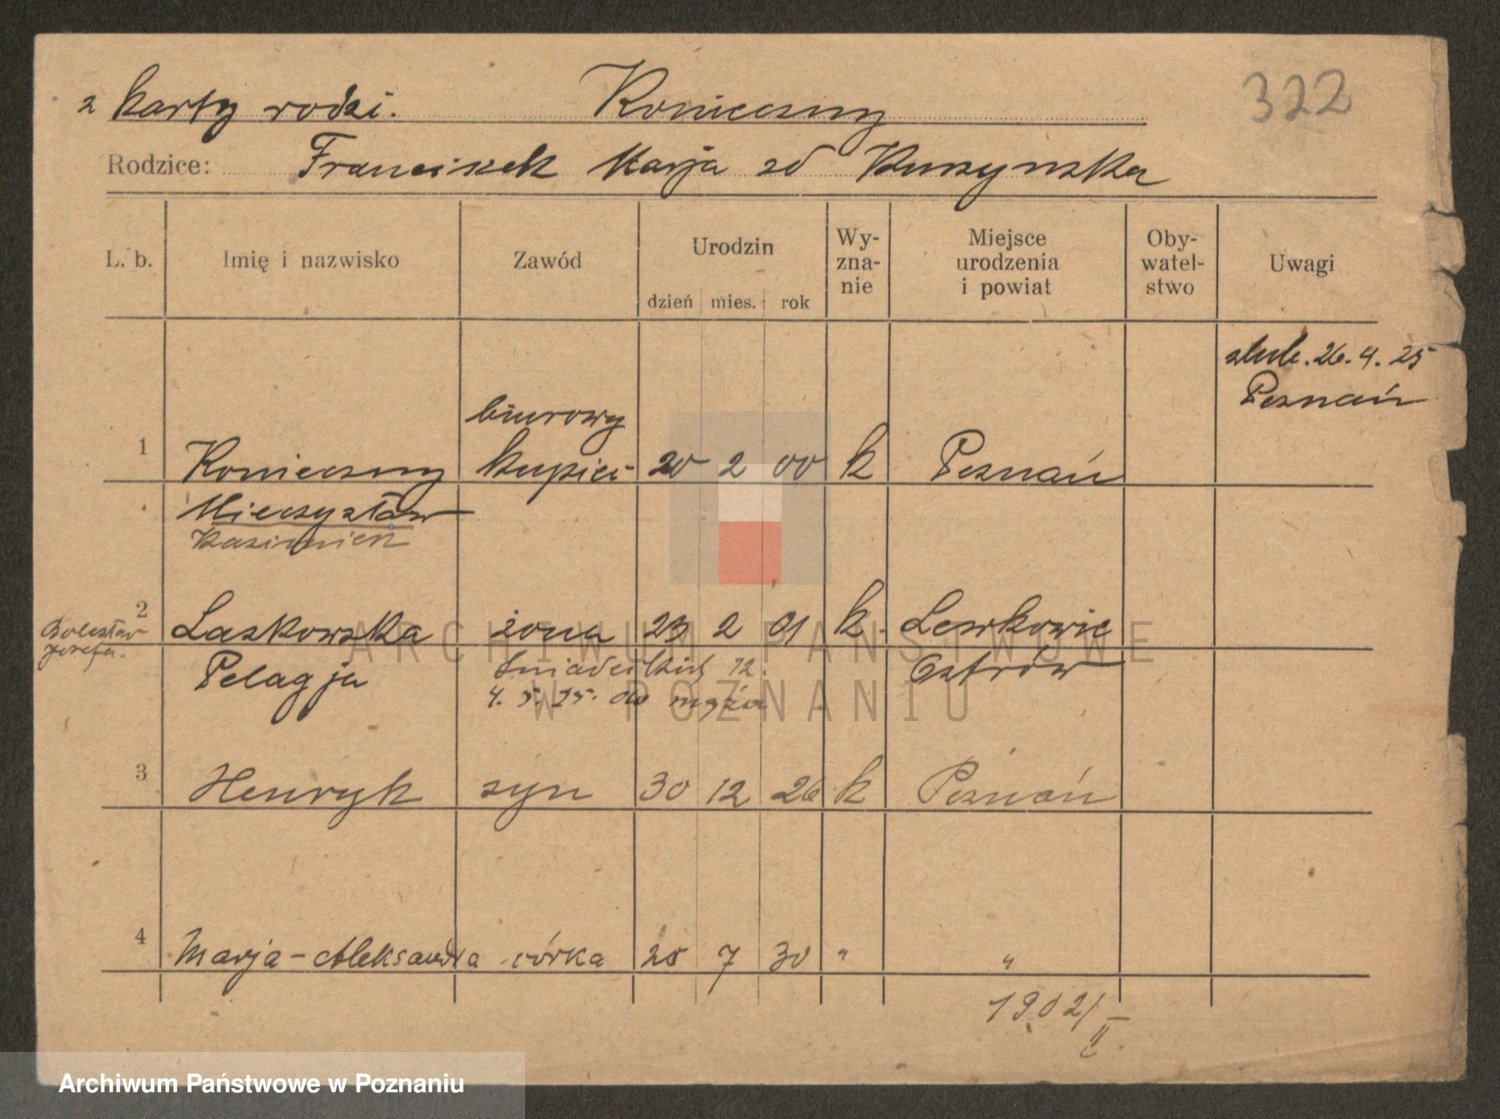 322
z karty rodzi. Konieczny
Rodzice: Franciszek Marja zd Kuszynska
L. b. Imię i nazwisko Zawód Urodzin dzień mies. rok Wy-zna-nie Miejsce urodzenia i powiat Oby-watel-stwo Uwagi
ślub. 26. 4. 25
Poznań
biurowy
1 Konieczny kupiec 20 2 00 k Poznań
Mieczysław
Kazimierz
2 Laskowska żona 23 2 01 k Lewkowie
Bolesław
Józefa.
Pelagja Śniadeckich 12. Ostrów
4. 5. 25. do męża
3 Henryk syn 30 12 26 k Poznań
4 Marja-Aleksandra córka 25 7 30 " "
1902/II
ARCHIWUM PAŃSTWOWE
W POZNANIU
Archiwum Państwowe w Poznaniu